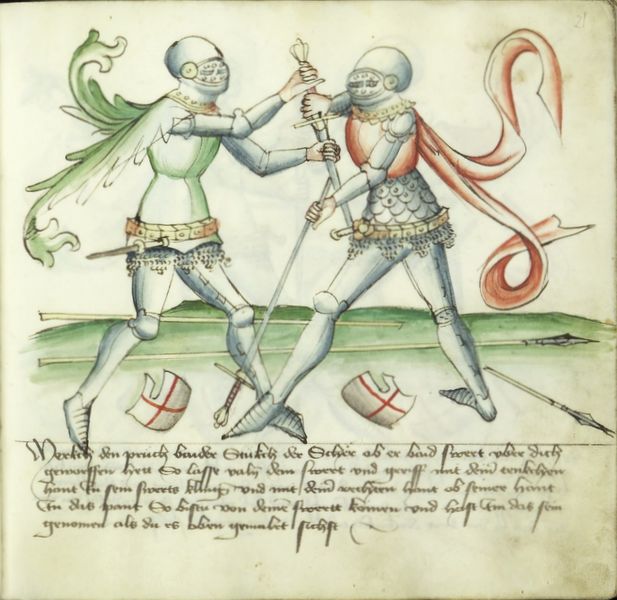 21
Merckh den pruch wider Stukch der Schär ob er baid swert vber dich
geworffen hett So lasse valn dein swert vnd greiff mit deiner tenkchen
hant In sein swerts kling vnd mit deiner rechten hant ob seiner hant
In das pant So bistu von deinē swertt komen vnd hast Im das sein
genomen als du es oben gemalet sichst